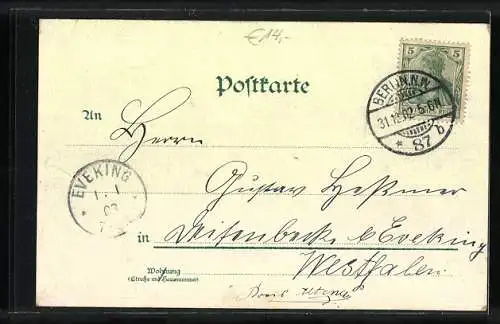 €14,-
Postkarte
5
BERLIN, N.W.
31.12.02. 5-6N.
* 87 b
An
Herrn
EVEKING
1. 1
03
Gustav Heßmer
in
b Eveking
Wohnung
(Straße und Hausnummer)
Westfalen
Kreis Altena